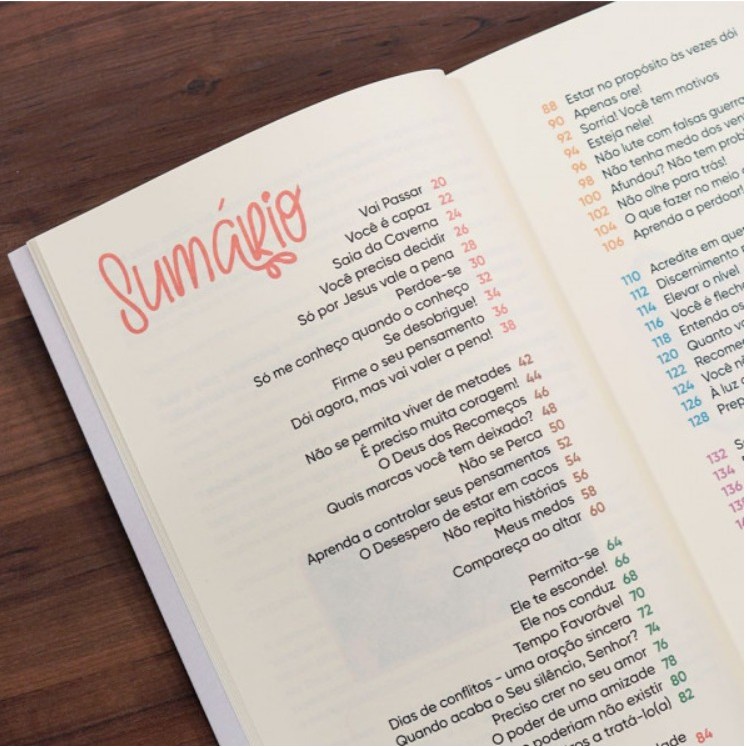 Sumário
Vai Passar 20
Você é capaz 22
Saia da Caverna 24
Você precisa decidir 26
Só por Jesus vale a pena 28
Perdoe-se 30
Só me conheço quando o conheço 32
Se desobrigue! 34
Firme o seu pensamento 36
Dói agora, mas vai valer a pena! 38
Não se permita viver de metades 42
É preciso muita coragem! 44
O Deus dos Recomeços 46
Quais marcas você tem deixado? 48
Não se Perca 50
Aprenda a controlar seus pensamentos 52
O Desespero de estar em cacos 54
Não repita histórias 56
Meus medos 58
Compareça ao altar 60
Permita-se 64
Ele te esconde! 66
Ele nos conduz 68
Tempo Favorável 70
Dias de conflitos - uma oração sincera 72
Quando acaba o Seu silêncio, Senhor? 74
Preciso crer no seu amor 76
O poder de uma amizade 78
poderiam não existir 80
a tratá-lo(a) 82
84
88 Estar no propósito às vezes dói
90 Apenas ore!
92 Sorria! Você tem motivos
94 Esteja nele!
96 Não lute com falsas
98 Não tenha medo dos
100 Afundou? Não tem
102 Não olhe para trás!
104 O que fazer no meio
106 Aprenda a perdoar!
110 Acredite em
112 Discernimento
114 Elevar o nível
116 Você é
118 Entenda
120 Quanto
122
124 Você
126 À luz
128
132
134
136